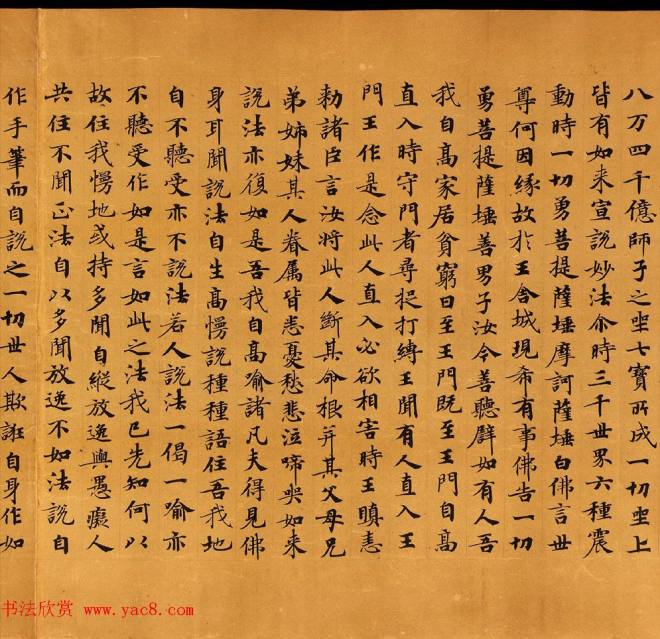 八万四千億師子之𫝶七寶所成一切𫝶上
皆有如来宣說妙法尒時三千世界六種震
動時一切勇菩提薩埵摩訶薩埵白佛言世
尊何因緣故扵王舍城現希有事佛告一切
勇菩提薩埵善男子汝今善聽譬如有人吾
我自髙家居貧窮曰至王門既至王門自髙
直入時守門者尋捉打縛王聞有人直入王
門王作是念此人直入必欲相害時王瞋恚
勑諸臣言汝将此人斷其命根并其父母兄
弟姉妹其人眷属皆悉憂愁悲泣啼哭如来
說法亦復如是吾我自髙喻諸凡夫得見佛
身耳聞說法自生髙慢說種種語住吾我地
自不聽受亦不說法若人說法一偈一喻亦
不聽受作如是言如此之法我已先知何以
故住我慢地或持多聞自縱放逸與愚癡人
共住不聞正法自以多聞放逸不如法說自
作手筆而自說之一切世人欺誑自身作如
书法欣赏 www.yac8.com